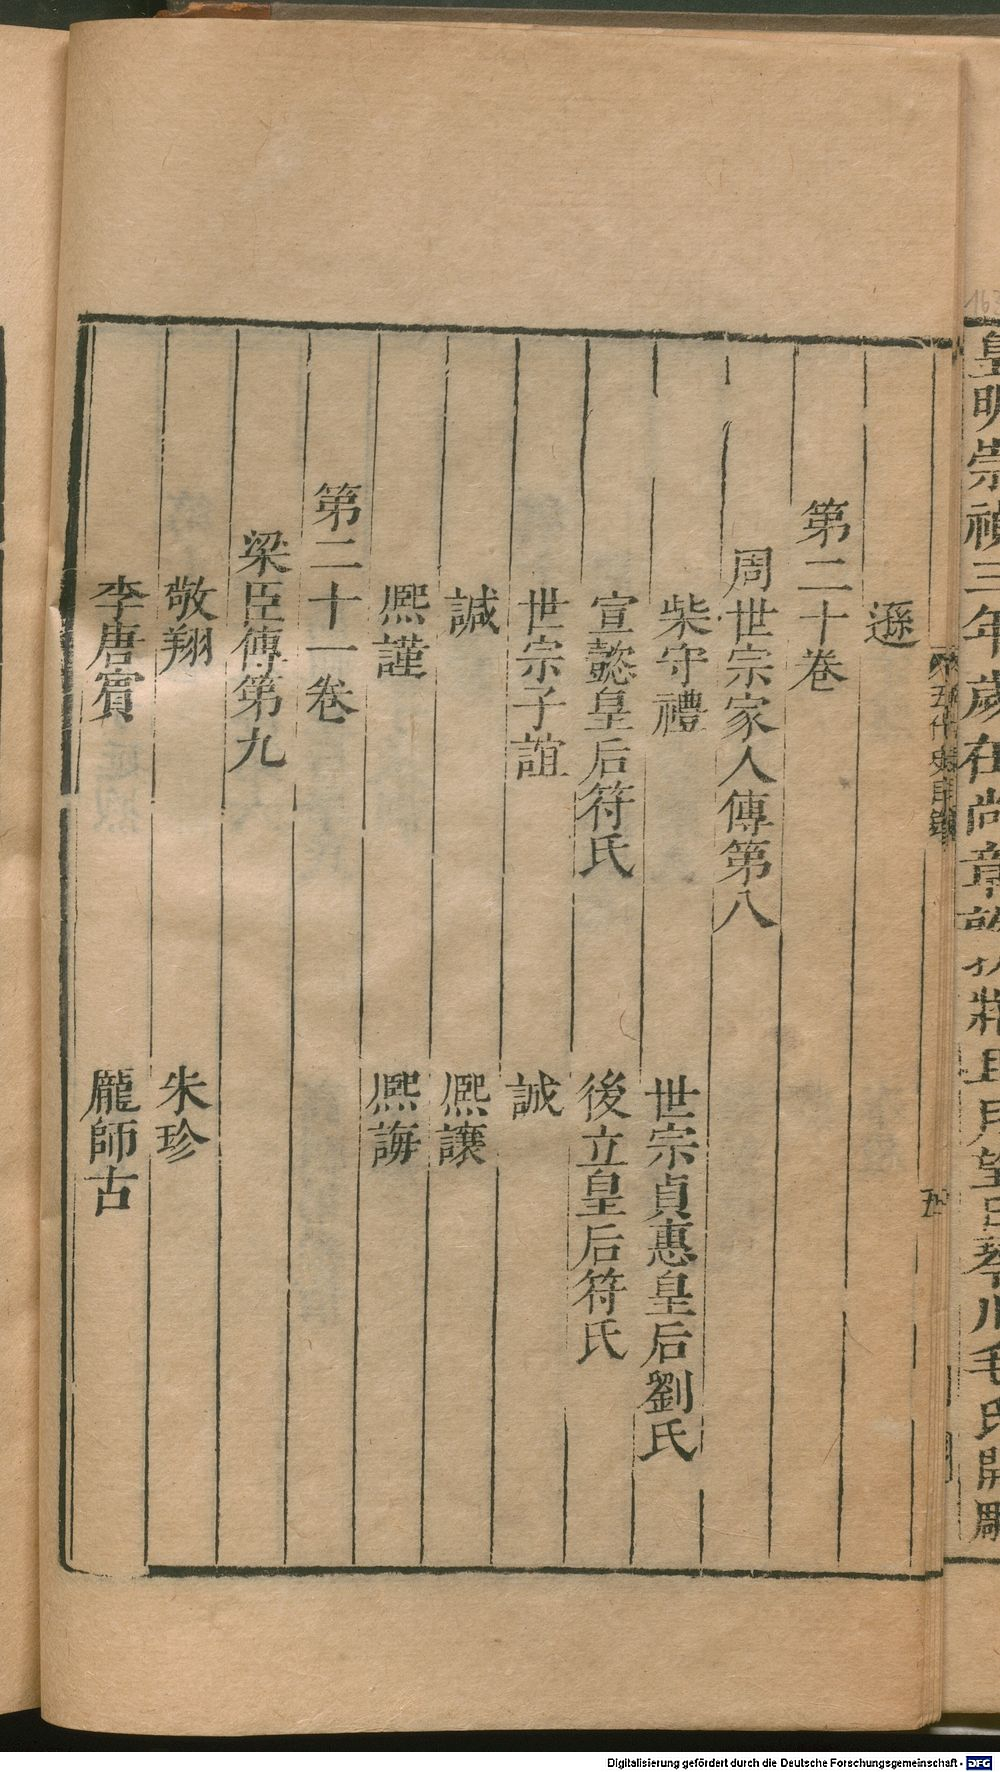 皇明崇禎三年歲在尚章
毛氏開雕
五代史目錄
五
遜
第二十卷
周世宗家人傳第八
柴守禮　世宗貞惠皇后劉氏
宣懿皇后符氏　後立皇后符氏
世宗子誼　誠
諴　熙讓
熙謹　熙誨
第二十一卷
梁臣傳第九
敬翔　朱珍
李唐賓　龐師古
Digitalisierung gefördert durch die Deutsche Forschungsgemeinschaft - DFG